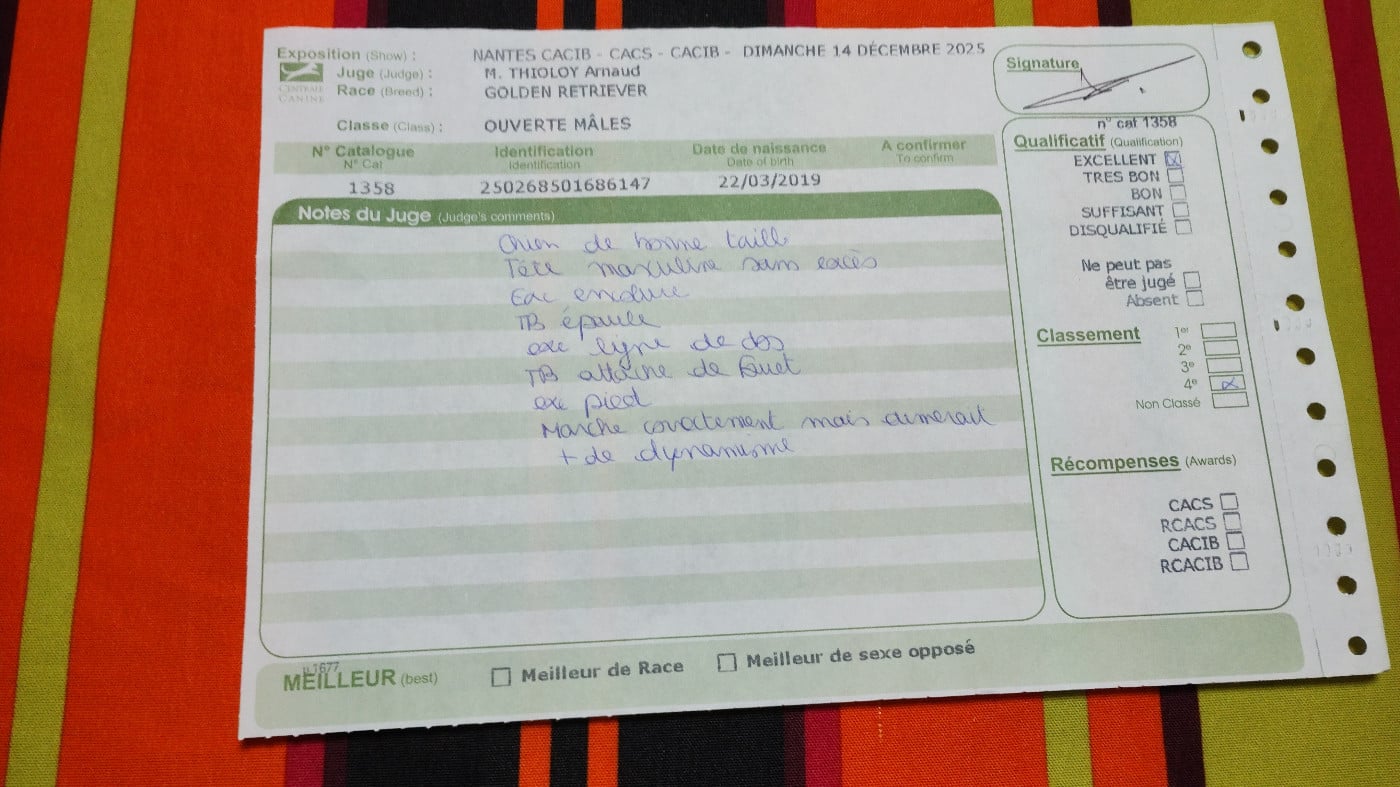 Exposition (Show) : NANTES CACIB - CACS - CACIB - DIMANCHE 14 DÉCEMBRE 2025
CENTRALE CANINE
Juge (Judge) : M. THIOLOY Arnaud
Race (Breed) : GOLDEN RETRIEVER
Classe (Class) : OUVERTE MÂLES
Signature
N° Catalogue Identification Date de naissance A confirmer
N° Cat Identification Date of birth To confirm
1358 250268501686147 22/03/2019
Notes du Juge (Judge's comments)
Chien de bonne taille
Tête masculine sans excès
Exc encolure
TB épaule
exc ligne de dos
TB attache de fouet
exc pied
Marche correctement mais aimerait
+ de dynamisme
n° cat 1358
Qualificatif (Qualification)
EXCELLENT
TRES BON
BON
SUFFISANT
DISQUALIFIÉ
Ne peut pas
être jugé
Absent
Classement
1er
2e
3e
4e
Non Classé
Récompenses (Awards)
CACS
RCACS
CACIB
RCACIB
MEILLEUR (best) Meilleur de Race Meilleur de sexe opposé